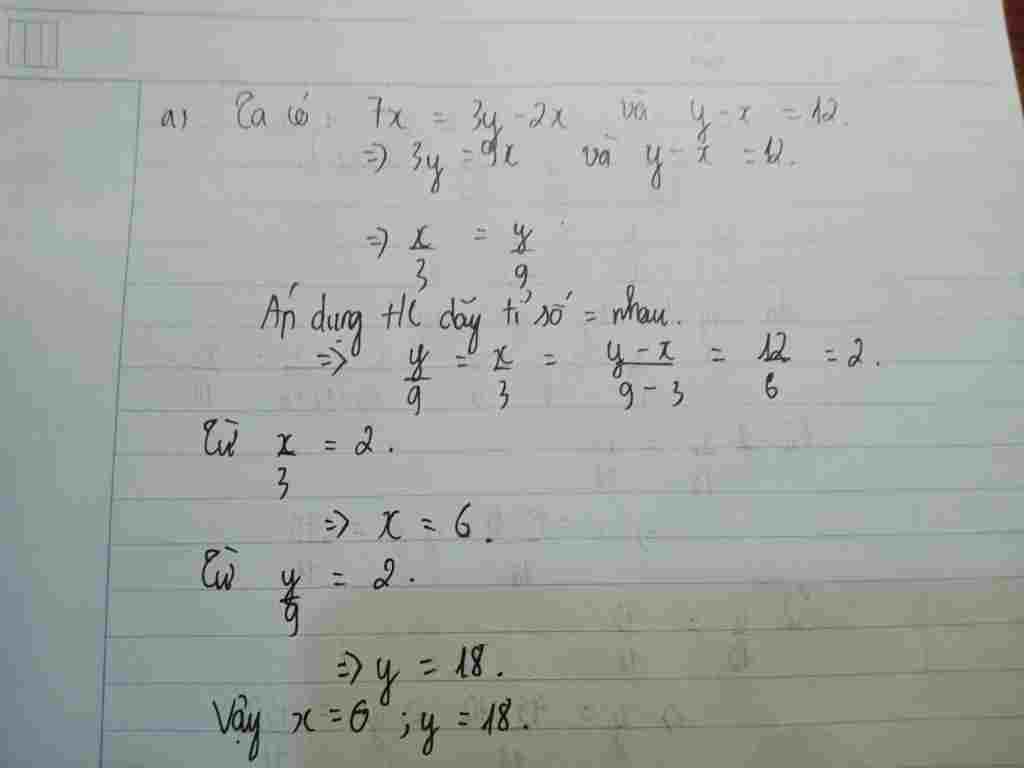 a) Ta có: 7x = 3y - 2x và y - x = 12.
=> 3y = 9x và y - x = 12.
=> x/3 = y/9
Áp dụng t/c dãy tỉ số = nhau.
=> y/9 = x/3 = (y - x)/(9 - 3) = 12/6 = 2.
Từ x/3 = 2.
=> x = 6.
Từ y/9 = 2.
=> y = 18.
Vậy x = 6 ; y = 18.